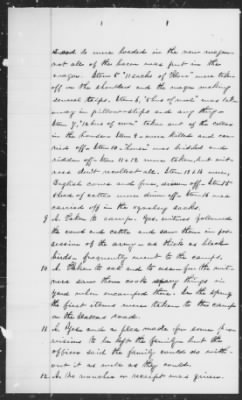 to mules loaded in the new wagon
not all of the bacon was put in the
wagon. Item 5" "11 sacks of flour" were taken
off on the shoulders and the wagon making
several trips. Item 6, "5 bus of meal" was taken
away in pillow-slips and any thing
Item 7, "16 bus of corn" taken out of the cellar
in the house Item 9 were killed and car-
ried off. Item 10 "horse" was bridled and
ridden off. Item 11 & 12 were taken, but wit-
ness don't recollect all. Item 13 & 14 were,
English cows and from, driven off. Item 15"
shed of cattle were driven off. Item 16 was
carried off in the sacks.
9 A. Taken to camp. Yes, witness followed
the road and cattle and saw them in pos-
session of the army - as thick as black
birds - frequently went to the camps.
10 A. Taken to eat and to wear for the wit-
ness saw them cook many things in
yard when encamped there. In the spring
the first items were taken to the camp
on the road.
11 A. Yes and a plea made for some pro-
visions to be left the family but the
officer said the family could do with-
out it as well as they could.
12 A. No voucher or receipt was given.